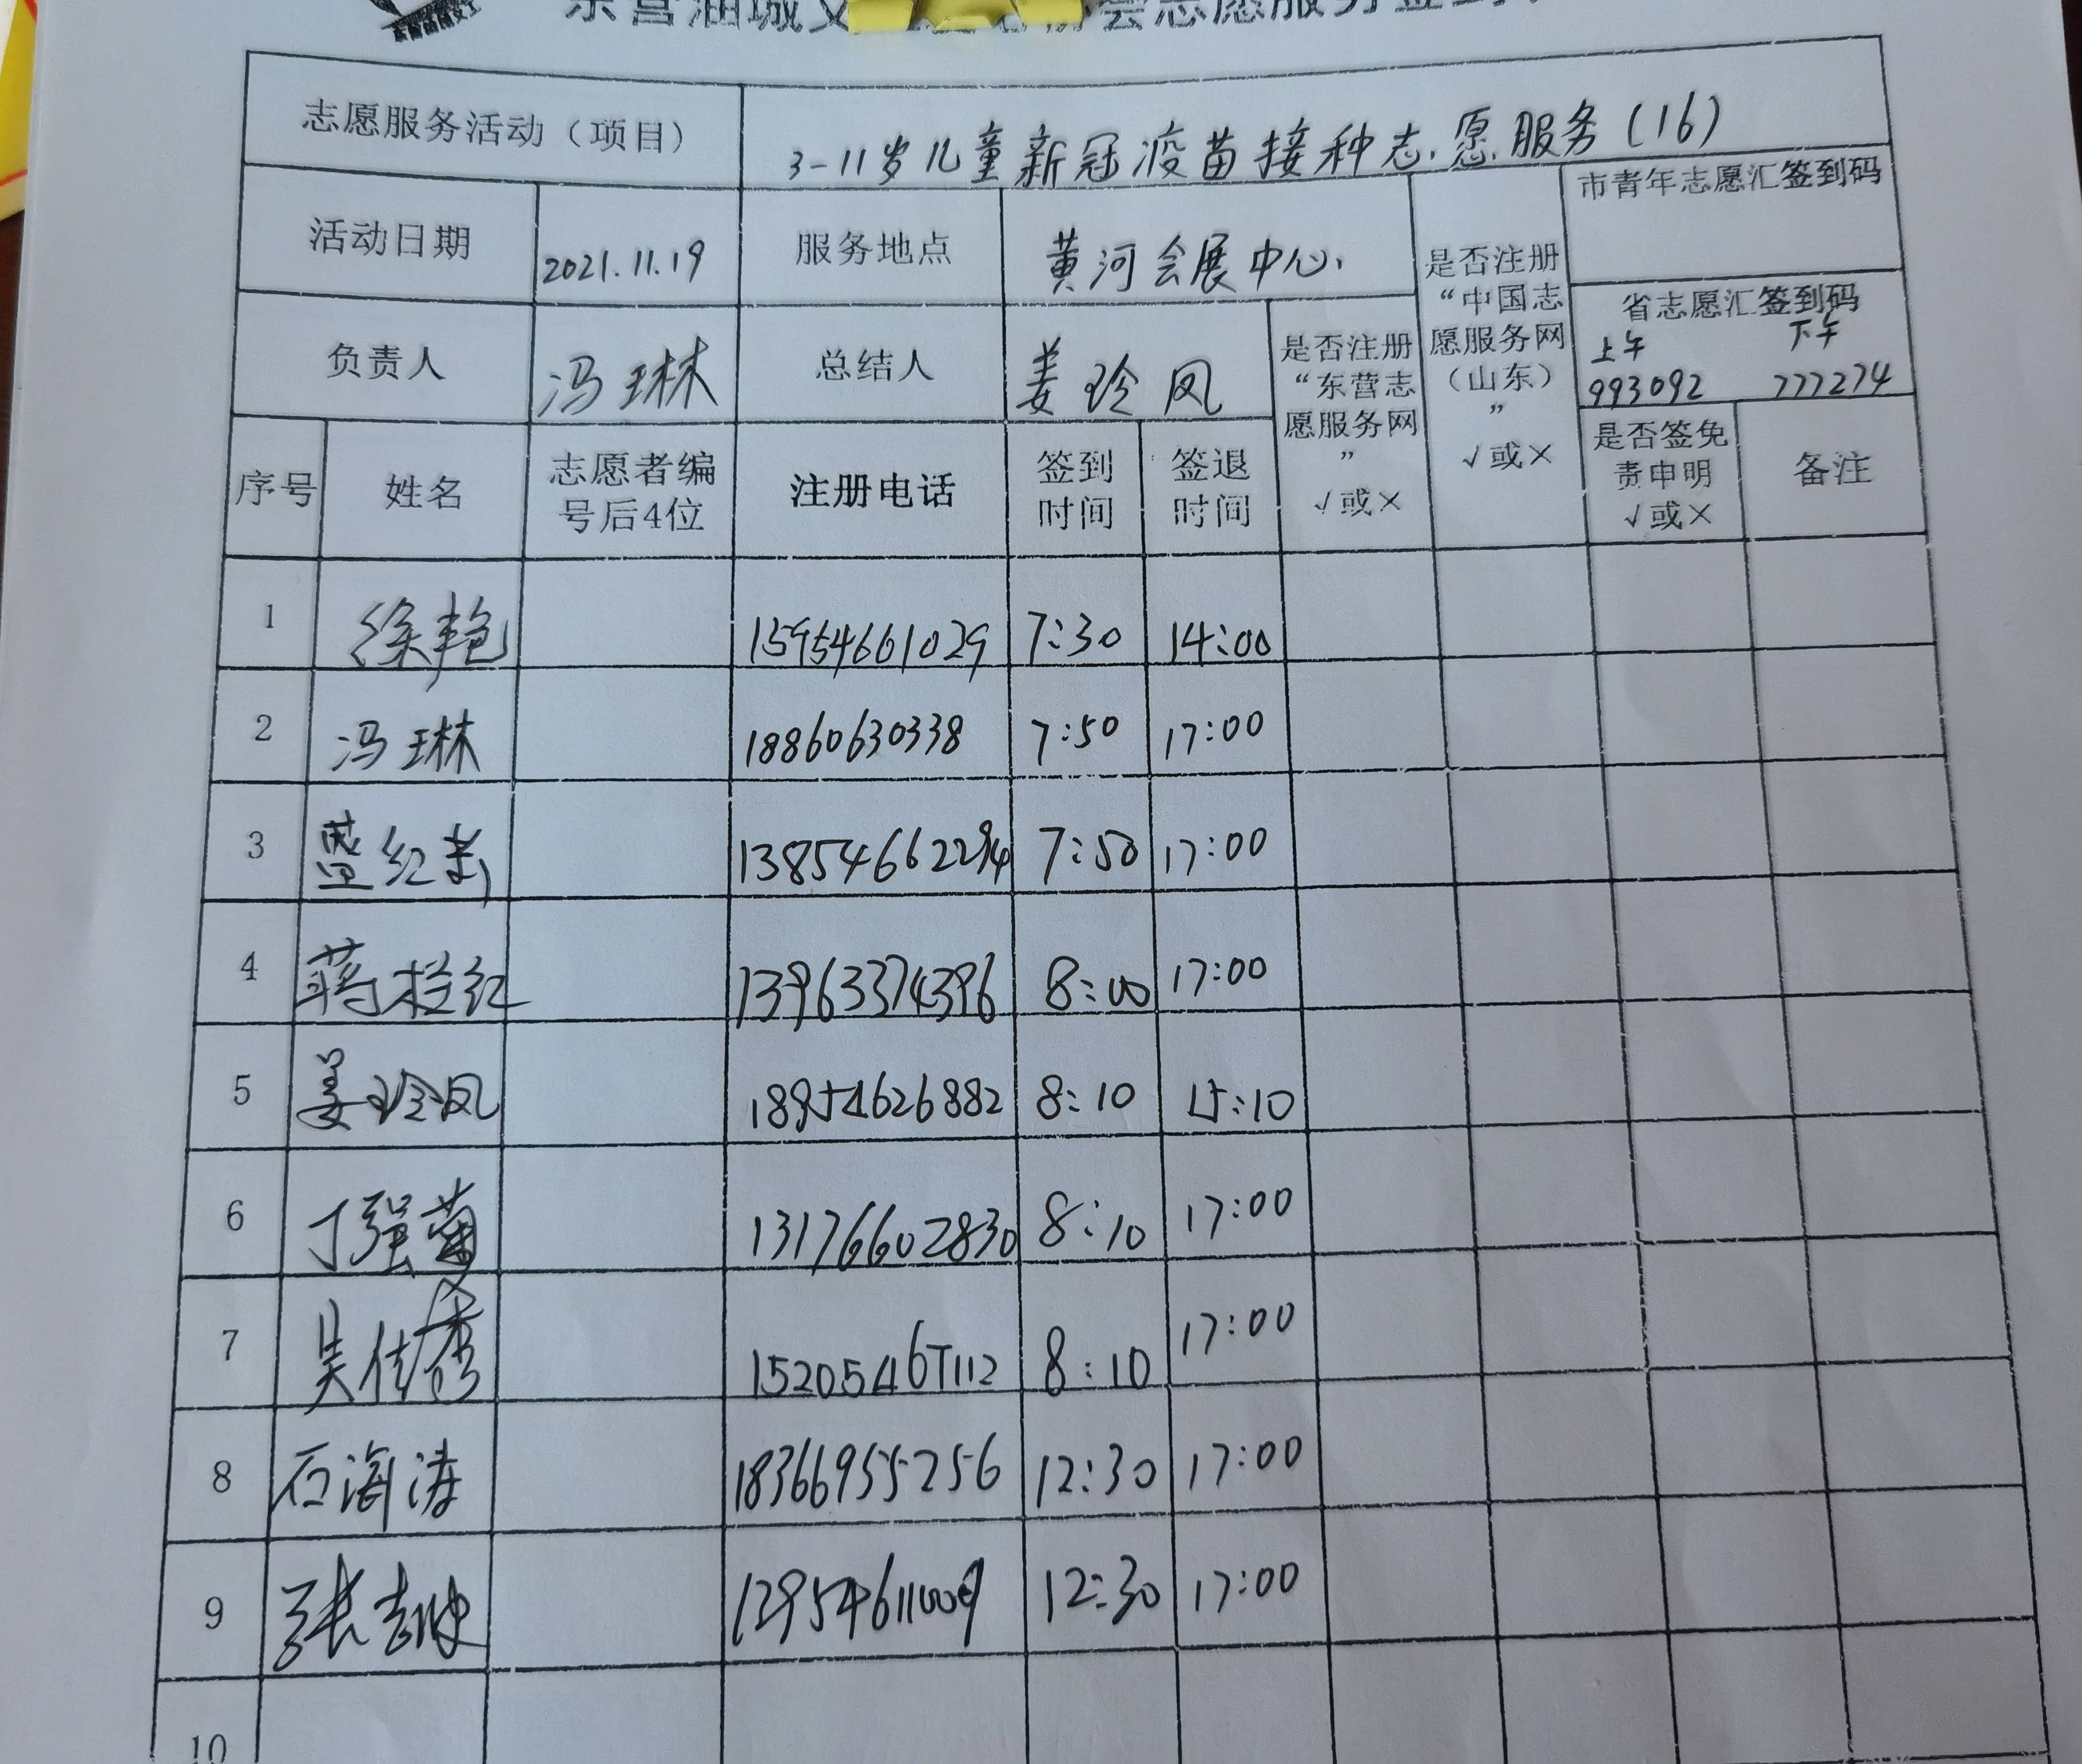 志愿服务活动（项目） 3-11岁儿童新冠疫苗接种志愿服务(16)
活动日期 2021.11.19 服务地点 黄河会展中心 是否注册“中国志愿服务网（山东）”√或× 市青年志愿汇签到码
省志愿汇签到码
上午 下午
993092 777274
负责人 冯琳 总结人 姜玲凤 是否注册“东营志愿服务网”√或×
序号 姓名 志愿者编号后4位 注册电话 签到时间 签退时间 是否签免责申明√或× 备注
1 徐艳 15954661029 7:30 14:00
2 冯琳 18860630338 7:50 17:00
3 13854662294 7:50 17:00
4 蒋桂红 13963374396 8:00 17:00
5 姜玲凤 18954626882 8:10 15:10
6 丁强菊 13176602830 8:10 17:00
7 吴佳秀 15205467112 8:10 17:00
8 石海涛 18366955256 12:30 17:00
9 12:30 17:00
10